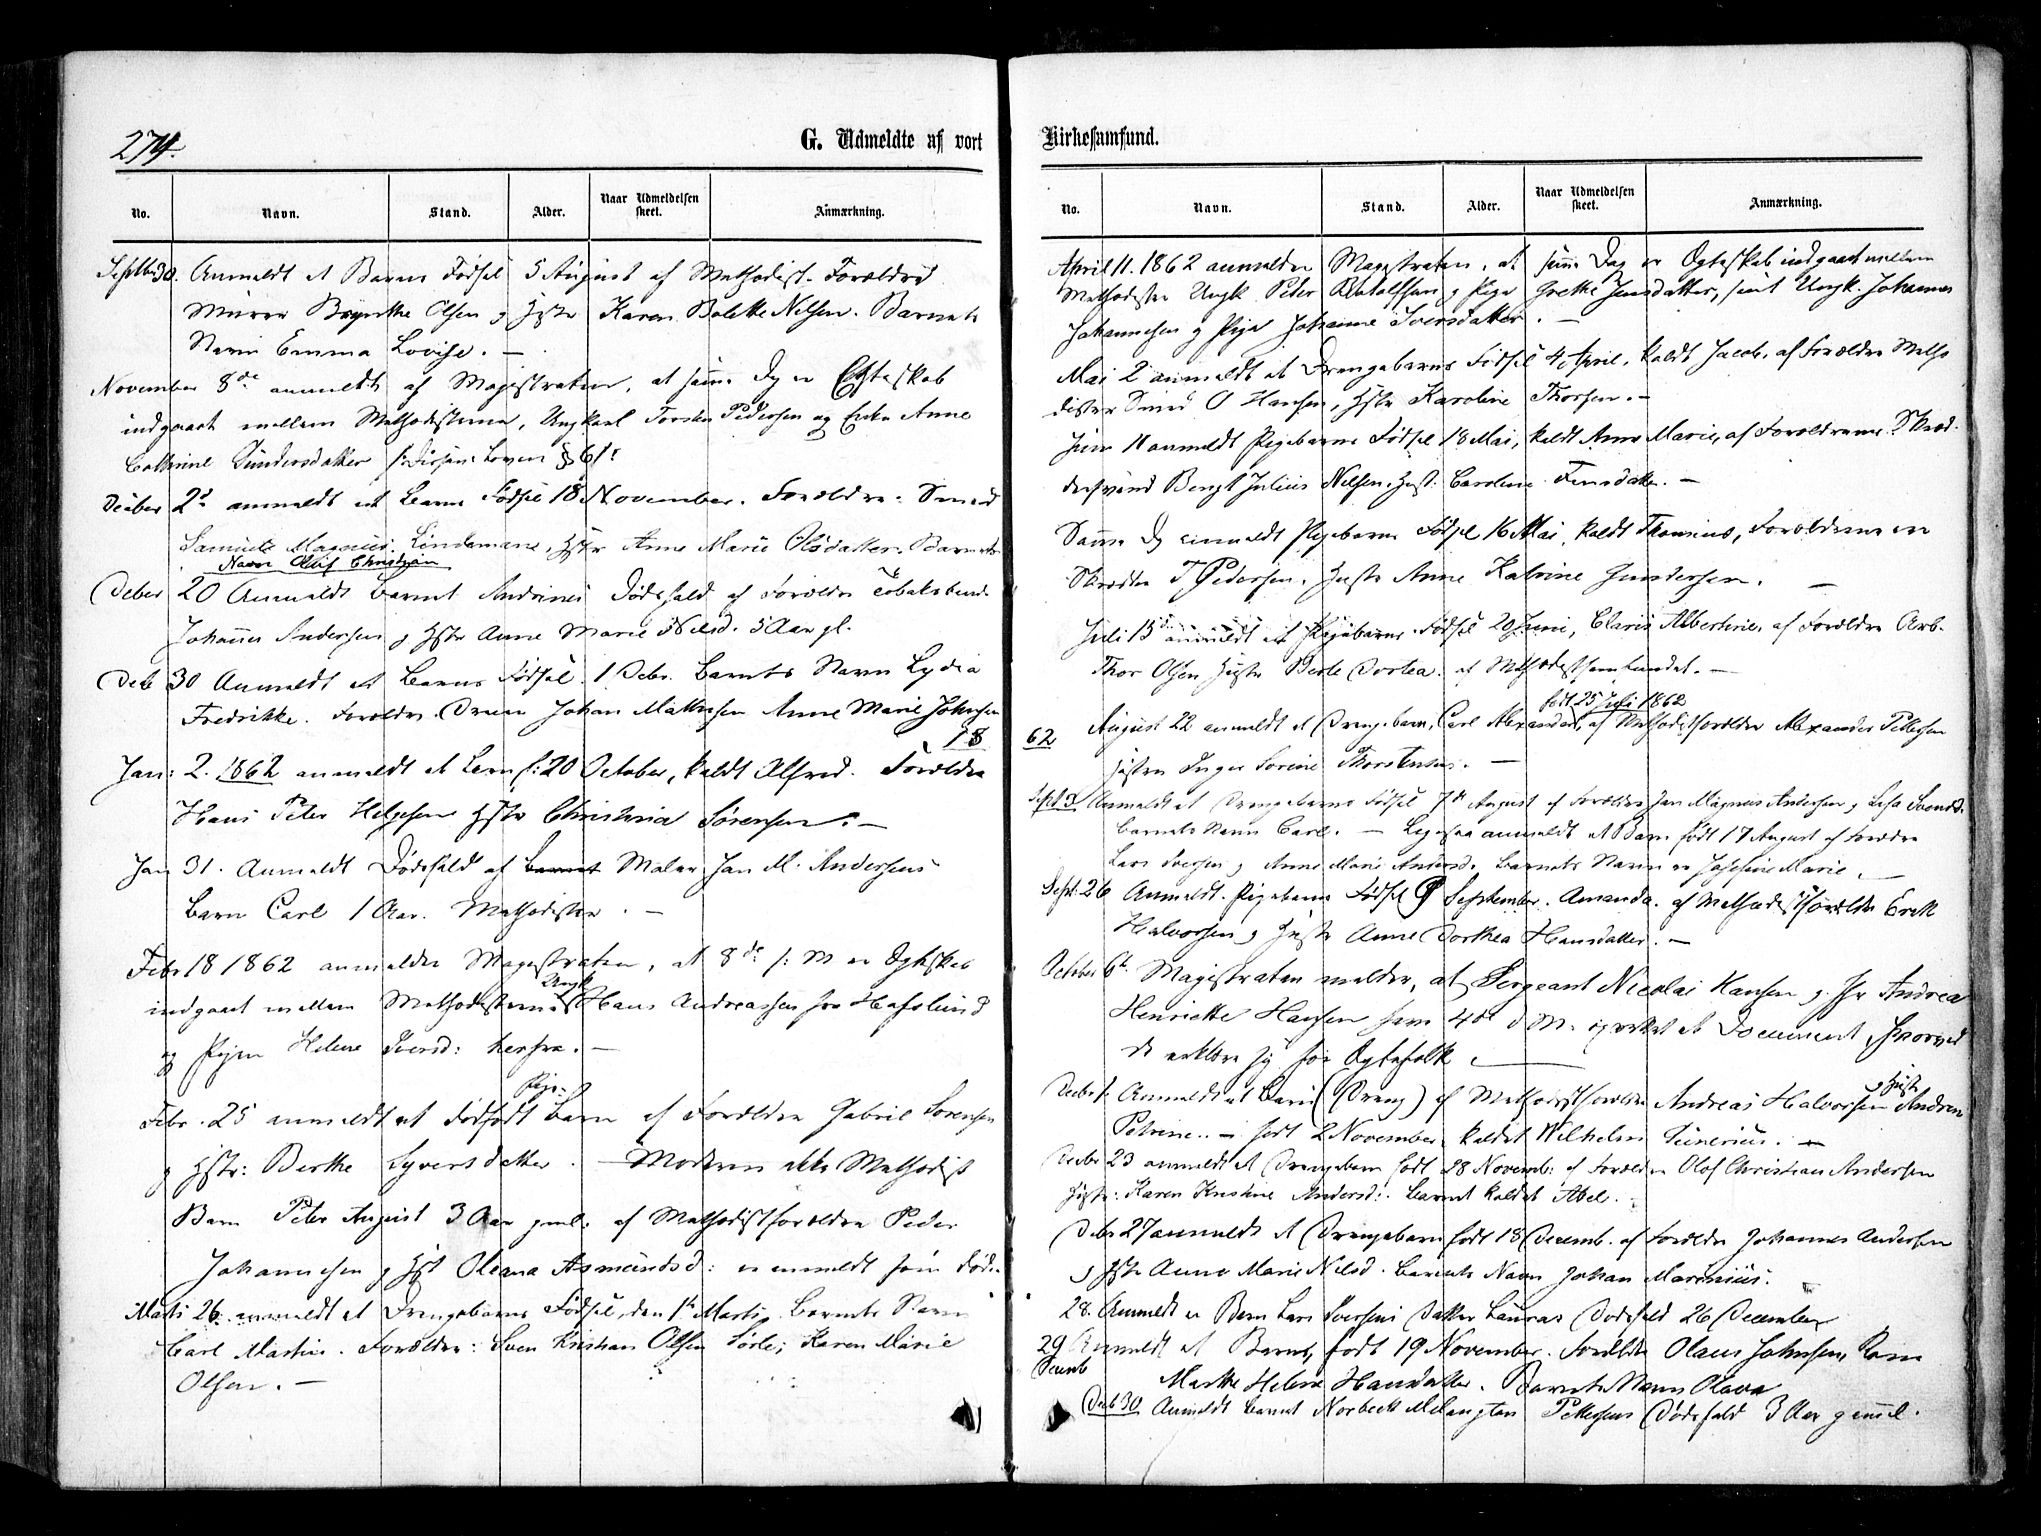 274.
G. Udmeldte af vort
No. Navn. Stand. Alder. Naar Udmeldelsen skeet. Anmærkning.
Septbr 30. Anmeldt et Barns Fødsel 5 August af Methodist-Forældre
Murer Olsen og Hstr Karen Bolette Nilsen. Barnets
Navn Emma Lovise. —
November 8de anmeldt af Magistraten, at samme Dag er Egteskab
indgaaet mellem Methodisterne, Ungkarl Torsten Pedersen og Enke Anne
Cathrine Gundersdatter Loven § 6
Deceber 2d anmeldt et Barns Fødsel 18 November. Forældre: Smed
Samuel Magnus Lindemann, Hstr Anne Marie Olsdatter. Barnets
Navn Oluf Christian
Deber 20 Anmeldt barnet Andrines Dødsfald af Forældre
Johannes Andersen og Hstr Anne Marie Nilsd. 5 Aar gl.
Debr 30 Anmeldt et Barns Fødsel 1 Debr. Barnets Navn Lydia
Fredrikke. Forældre. Johan Mathisen Anne Marie Johnsen
18
Jan: 2. 1862 anmeldt et Barn f: 20 October, kaldt Alfred. Forældre
Hans Peter Helgesen Hstr Christine Sørensen. —
Jan 31. Anmeldt Dødsfald af Maler Jan M. Andersens
Barn Carl 1 Aar. Methodister. —
Febr 18 1862 anmelder Magistraten, at 8de f: M er Egteskab
indgaaet mellem Methodisterne Ungk Hans Andreassen fra Hafslund
og Pigen Helene Iversd: herfra. —
Febr. 25 anmeldt et dødfødt Pige-Barn af Forældre Gabriel Sørensen
og Hstr: Berthe Syversdatter. — Moderen Methodist
Barn Peter August 3 Aar gml. af Methodistforældre Peder
Johannesen og Hst Oleana Asmundsd: er anmeldt som død.
Marts 26. anmeldt et Drengebarns Fødsel, den 1ste Marts. Barnets Navn
Carl Martin. Forældre: Sven Kristian Olsen Karen Marie
Olsen. —
Kirkesamfund.
No. Navn. Stand. Alder. Naar Udmeldelsen skeet. Anmærkning.
April 11. 1862 anmelder Magistraten, at samme Dag er Egteskab indgaaet mellem
Methodister Ungk Peter og Pige Grethe Jensdatter, samt Ungk. Johannes
Johannesen og Pige Johanne Iversdatter. —
Mai 2 anmeldt et Drengebarns Fødsel 4 April, kaldt Jacob, af Forældre Metho
dister Smed O Hansen, Hstr Karoline Thorsen. —
Juni 11 anmeldt Pigebarns Fødsel 18 Mai, kaldt Anne Marie, af Forældrene
Bengt Julius Nilsen, Hust: Caroline —
Samme Dg anmeldt Pigebarns Fødsel 16 Mai, kaldt Forældrene er
Skrædder T Pedersen. Hustr Anne Katrine Gundersen. —
Juli 15 anmeldt et Pigebarns Fødsel 20 Juni, af Forældre Arb.
Thor Olsen Hustr Berte Dortea. af Methodistsamfundet. —
født 25 Juli 1862
62 August 22 anmeldt et Drengebarn, Carl Alexander, af Methodistforældre Alexander Pettersen
Hustru Inger Sorine —
Sept Anmeldt et Drengebarns Fødsel 7de August af Forældre Jan Magnus Andersen og
barnets Navn Carl. — Ligesaa anmeldt et Barn født 17 August af Forældre
Lars Iversen og Anne Marie Andersd, Barnets Navn er Josefine Marie. —
Sept. 26 Anmeldt. Pigebarns Fødsel September. Amanda. af Methodistforældre Erik
Halvorsen og Hustr Anne Dorthea Hansdatter. —
October 6te Magistraten melder, at Sergeant Nicolai Hansen og Jfr Andrea
Henriette Hansen have 4de d M. oprettet et Document, hvorved
de erklære sig for Egtefolk. —
Decbr Anmeldt et Barn (Dreng) af Methodistforældre Andreas Halvorsen og Hustr Andrea
Petrine. — født 2 November, kaldet Wilhelm —
Decbr 23 anmeldt et Drengebarn født 28 Novemb: af Forældre Olof Christian Andersen
Hustr: Karen Kristine Andersd:. barnet kaldet Abel. —
Debr 27 anmeldt et Drengebarn født 18 Decemb. af Forældre Johannes Andersen
og Hstr Anne Marie Nilsd. barnets Navn Johan Marinius.
28. Anmeldt er Barn Lars Iversens Datter Lauras Dødsfald 26 December
29 Anmeldt et Barns, født 19 November. Forældre Olaus Johnsen, Kone
Decemb Marthe Helene Hansdatter. Barnets Navn Olava
Decb 30 Anmeldt barnet Norbeck Melangton Pettersens Dødsfald 3 Aar gammel.